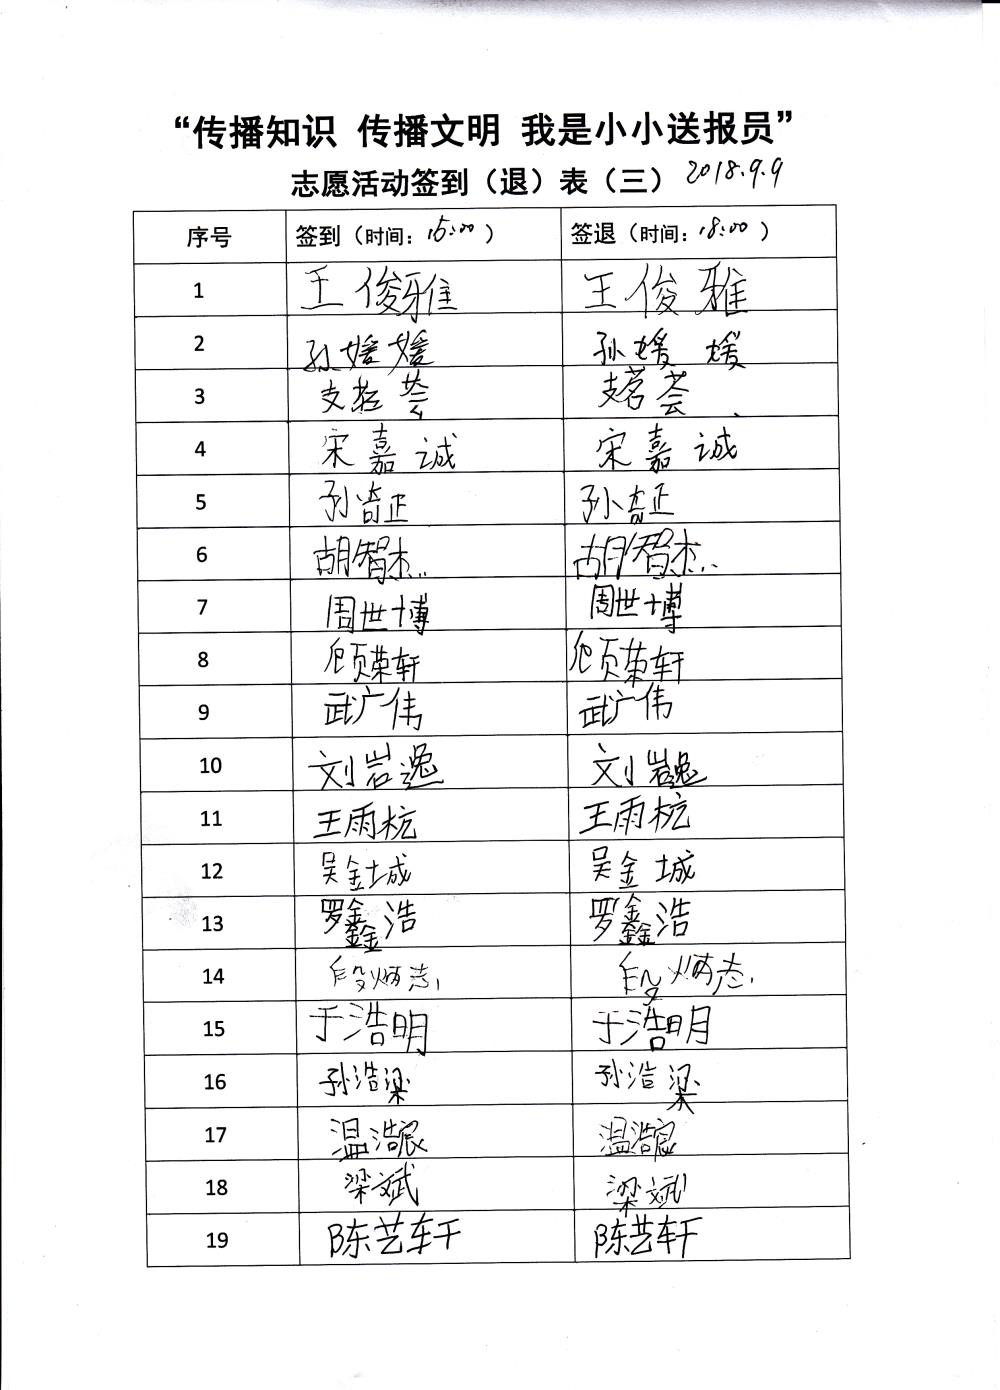 “传播知识 传播文明 我是小小送报员”
志愿活动签到（退）表（三） 2018.9.9
序号 签到（时间：15:00） 签退（时间：18:00）
1 王俊雅 王俊雅
2 孙媛媛 孙媛媛
3 支茗荟 支茗荟
4 宋嘉诚 宋嘉诚
5 孙奇正 孙奇正
6 胡智杰 胡智杰
7 周世博 周世博
8 顾荣轩 顾荣轩
9 武广伟 武广伟
10 刘岩逸 刘岩逸
11 王雨杭 王雨杭
12 吴金城 吴金城
13 罗鑫浩 罗鑫浩
14 段炳志 段炳志
15 于浩明 于浩明
16 孙浩梁 孙浩梁
17 温浩宸 温浩宸
18 梁斌 梁斌
19 陈艺轩 陈艺轩